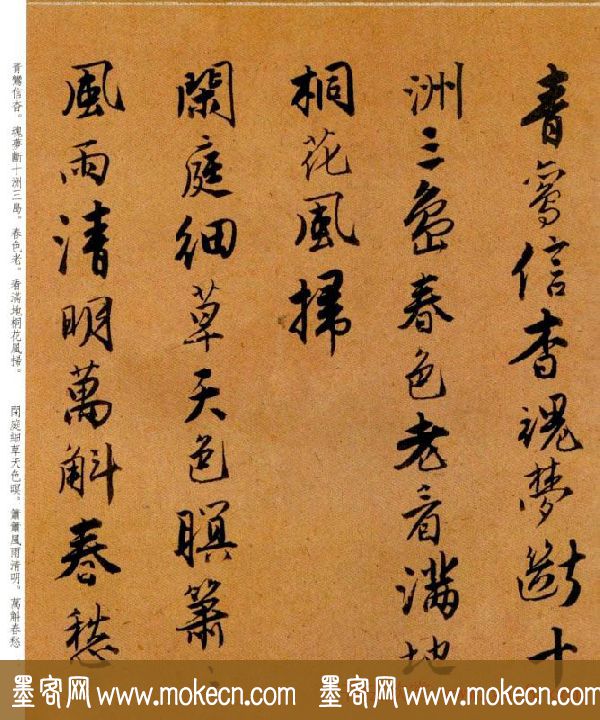 青鸞信杳魂夢斷十
洲三島春色老看滿地
桐花風掃
閑庭細草天色暝簫〻
風雨清明萬斛春愁
青鸞信杳。魂夢斷十洲三島。春色老。看滿地桐花風掃。
閑庭細草天色暝。簫簫風雨清明。萬斛春愁
墨客网 www.mokecn.com 墨客网 www.mokecn.com